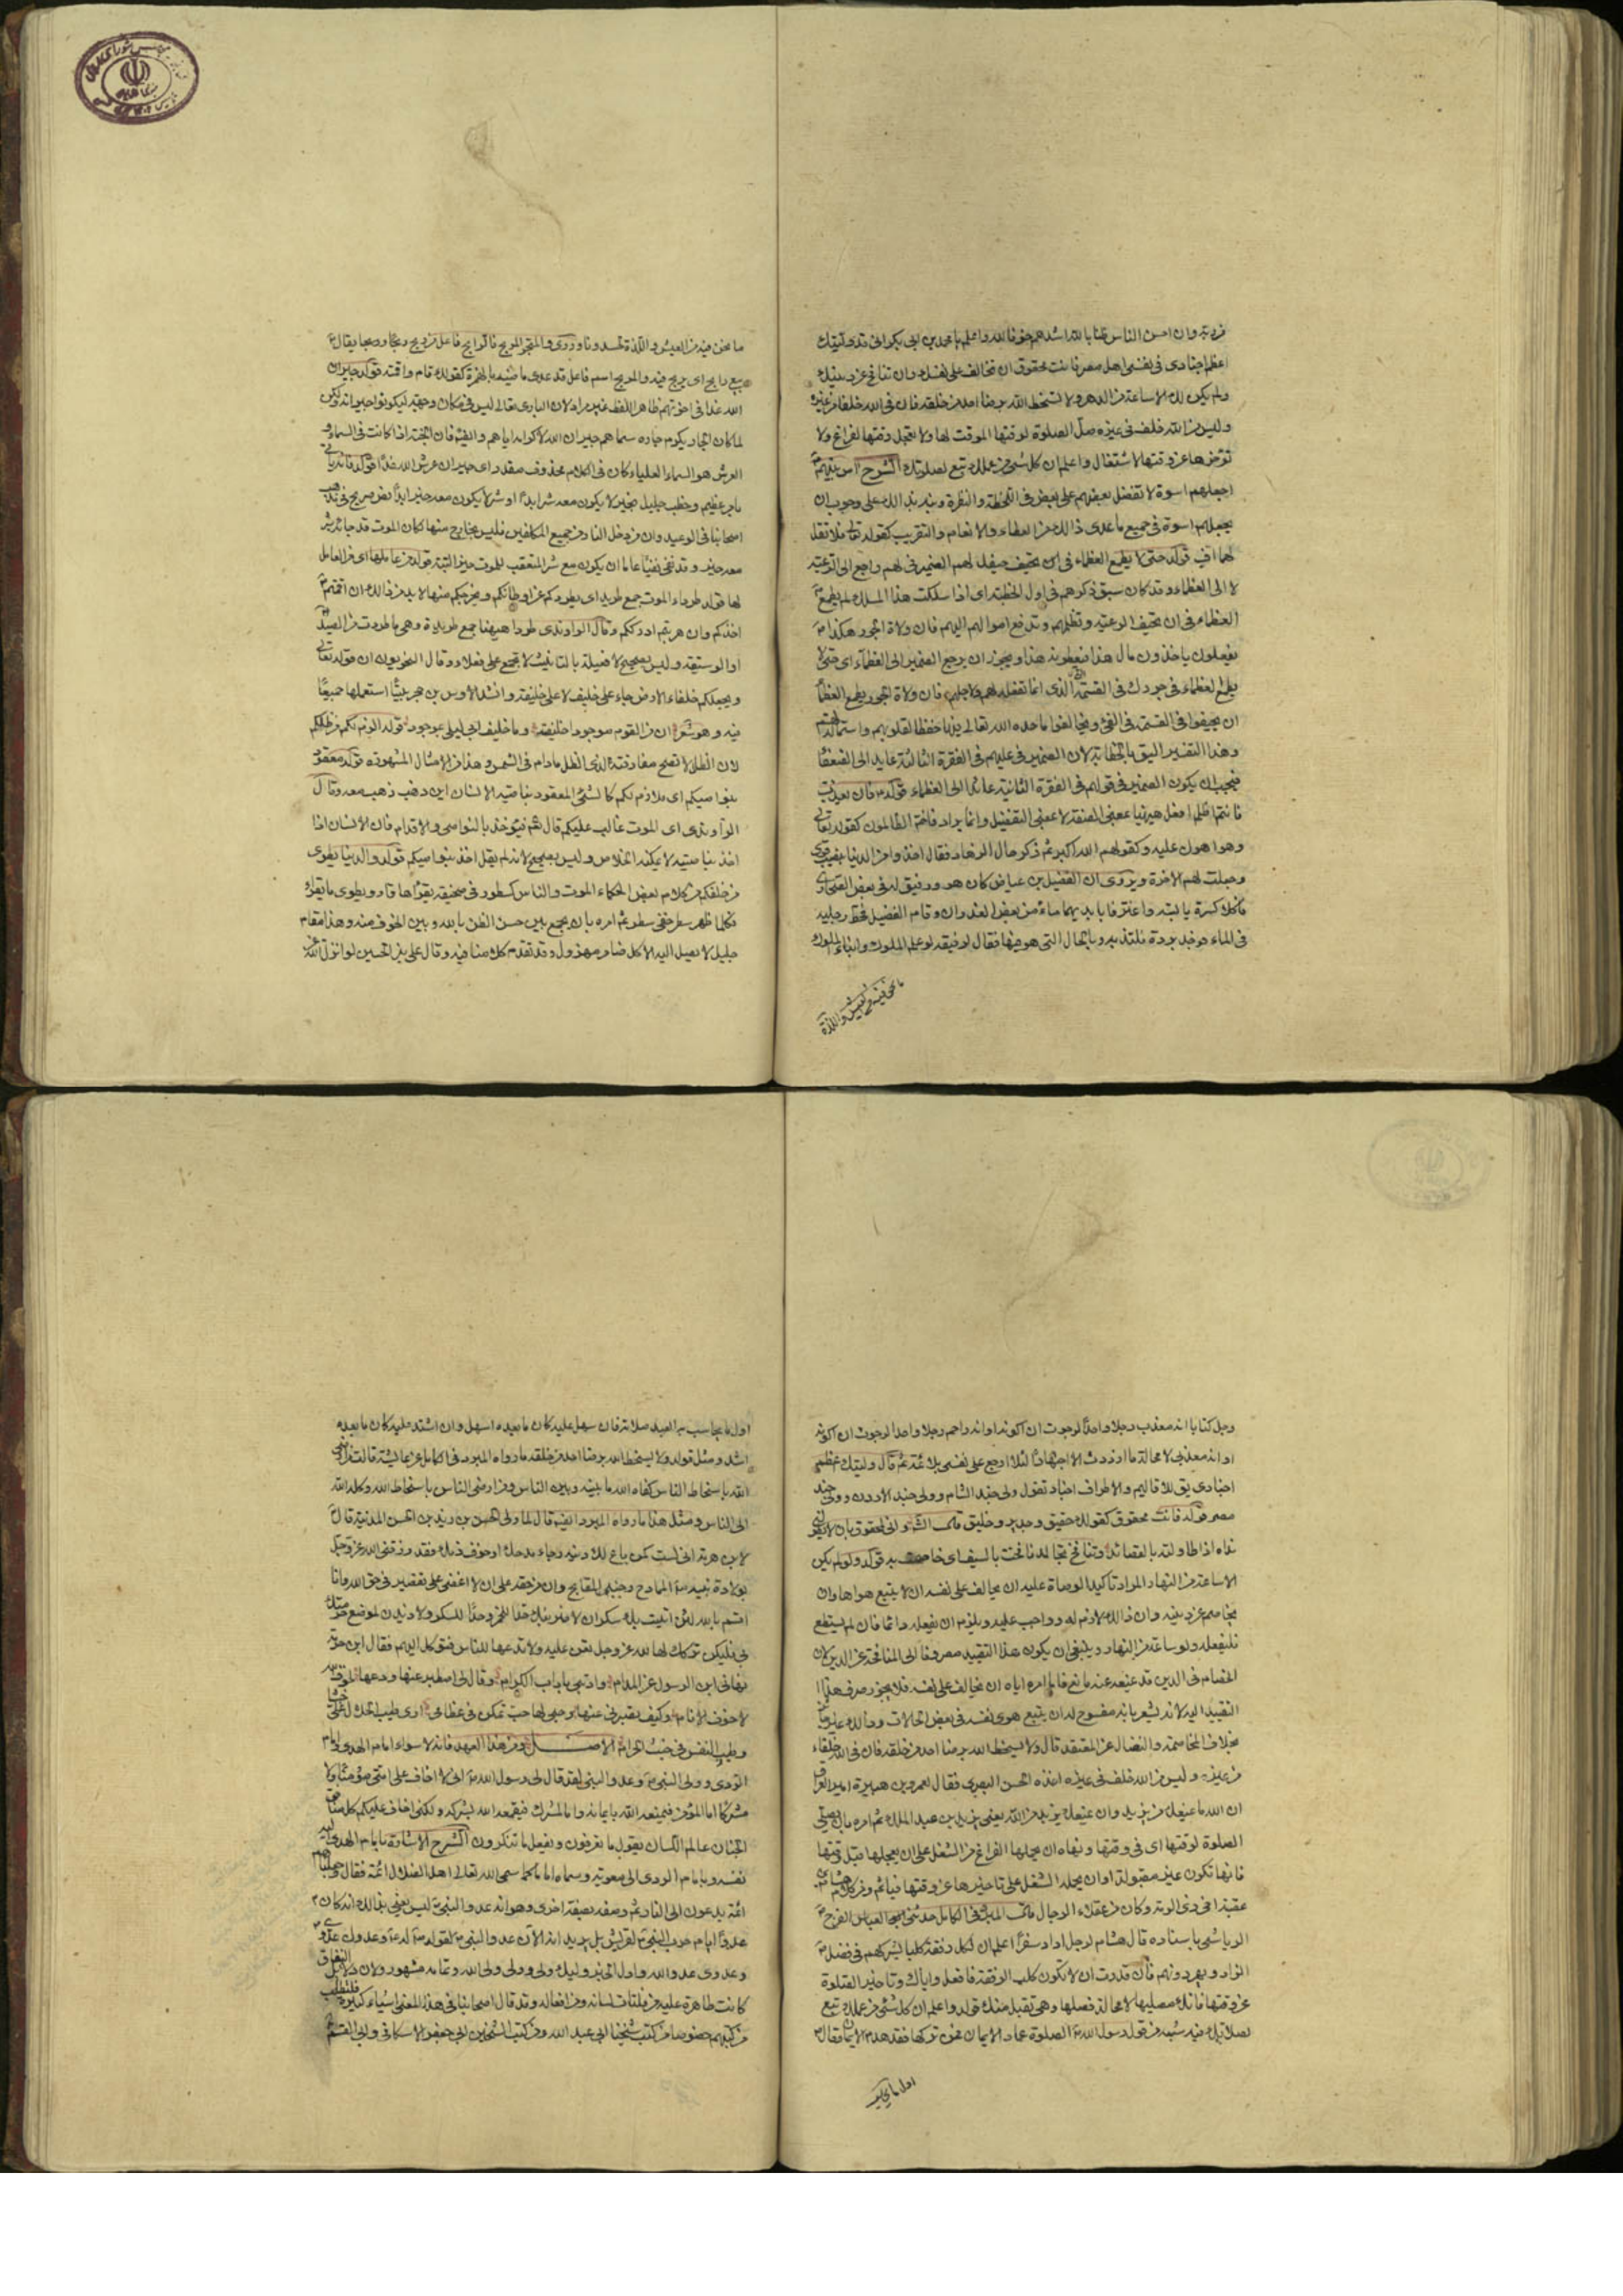 من ربه وان احسن الناس ظنا بالله اشدهم خوفا لله واعلم يا محمد بن ابى بكر انى قد وليتك
اعظم اجنادى فى نفسى اهل مصر فانت محقوق ان تخالف على نفسك وان تنافح عن دينك
ولو لم يكن لك الا ساعة من الدهر ولا تسخط الله برضا احد من خلقه فان فى الله خلفا من غيره
وليس من الله خلف فى غيره صل الصلوة لوقتها الموقت لها ولا تعجل وقتها لفراغ ولا
تؤخرها عن وقتها لاشتغال واعلم ان كل شئ من عملك تبع لصلوتك الشرح آس بينهم
اجعلهم اسوة لا تفضل بعضهم على بعض فى اللحظة والنظرة ونبه بذلك على وجوب ان
يجعلهم اسوة فى جميع ما عدى ذالك من العطاء والانعام والتقريب كقوله تعالى فلا تقل
لهما اف قوله حتى لا يطمع العظماء فى ان تحيف حيفك لهم الضمير فى لهم راجع الى الرعية
لا الى العظماء وقد كان سبق ذكرهم فى اول الخطبة اى اذا سلكت هذا المسلك لم يطمع
العظماء فى ان تحيف الرعية وتظلمهم وتدفع اموالهم اليهم فان ولاة الجور هكذا
يفعلون ياخذون مال هذا فيعطونه هذا ويجوز ان يرجع الضمير الى العظماء اى حتى لا
يطمع العظماء فى جورك فى القسم الذى انما تفعله لهم ولاجلهم فان ولاة الجور يطمع العظماء
ان يحيفوا فى القسمة فى الفئ ويخالفوا ما حده الله تعالى فيها حفظا لقلوبهم واستمالة لهم
وهذا التفسير اليق بالخطابة لان الضمير فى عليهم فى الفقرة الثالثة عايد الى الضعفا
فيجب ان يكون الضمير فى قولهم فى الفقرة الثانية عائدا الى العظماء قوله فان يعذب
فانتم اظلم افعل هيهنا بمعنى الصفة لا بمعنى التفضيل وانما يراد فانتم الظالمون كقوله تعالى
وهو اهون عليه وكقولهم الله اكبر ثم ذكر حال الزهاد فقال اخذوا من الدنيا بنصيب قوى
وجعلت لهم الاخرة ويروى ان الفضيل بن عياض كان هو ورفيق له فى بعض الصحارى
فاكلا كسرة يابسة واغترفا بايديهما ماء من بعض الغدران وقام الفضيل فحط رجليه
فى الماء فوجد برده فالتذ به وبالحال التى هو فيها فقال لرفيقه لو علم الملوك وابناء الملوك
ما نحن فيه من العيش واللذة
ما نحن فيه من العيش واللذة لحسدونا وروى والمتجر المربح فالرابح فاعل من ربح ربحا يقال
بيع رابح اى يربح فيه والمربح اسم فاعل قد عدى ماضيه بالهمزة كقولك قام واقمته قوله جيران
الله غدا فى اخرتهم ظاهر اللفظ غير مراد لان البارى تعالى ليس فى مكان وجهة ليكونوا جيرانه ولكن
لما كان الجار يكرم جاره سماهم جيران الله لاكرامه اياهم وايضا فان الجنة اذا كانت فى السماء و
العرش هو السماء العليا كان فى الكلام محذوف مقدر اى جيران عرش الله غدا قوله فانه ياتى
بامر عظيم وخطب جليل بخير لا يكون معه شر ابدا او شر لا يكون معه خير ابدا نص صريح فى مذهب
اصحابنا فى الوعيد وان من دخل النار من جميع المكلفين فليس بخارج منها لكان الموت قد جائه بشر
معه خير وقد نفى نفيا عاما ان يكون مع شر المتعقب للموت خير البتة قوله من عاملها اى من العامل
لها قوله طرداء الموت جمع طريد اى يطردكم عن اوطانكم ويخرجكم منها لا بد من ذالك ان اقمتم
اخذكم وان هربتم ادرككم وقال الراوندى طرداء هيهنا جمع طريدة وهى ما طردت من الصيد
او الوسيقة وليس بصحيح لان فعيلة بالتانيث لا تجمع على فعلاء وقال النحويون ان قوله تعالى
ويجعلكم خلفاء الارض جاء على خليف لا على خليفة وانشد لاوس بن حجر بيتا استعملها جميعا
فيه وهو شعر ان من القوم موجودا خليفته وما خليف ابى ليلى بموجود قوله الزم لكم من ظلكم
لان الظل لا تصح مفارقته لذى الظل مادام فى الشمس وهذا من الامثال المشهورة قوله معقود
بنواصيكم اى ملازم لكم كالشئ المعقود بناصية الانسان اين ذهب ذهب معه وقال
الراوندى اى الموت غالب عليكم قال ثم فيؤخذ بالنواصى والاقدام فان الانسان اذا
اخذ بناصيته لا يمكنه الخلاص وليس بصحيح لانه لم يقل اخذ بنواصيكم قوله والدنيا تطوى
من خلفكم من كلام بعض الحكماء الموت والناس كسطور فى صحيفة يقرؤها قار ويطوى ما يقرء
فكلما ظهر سطر خفى سطر ثم امره بان يجمع بين حسن الظن بالله وبين الخوف منه وهذا مقام
جليل لا يصل اليه الا كل ضامر مهزول وقد تقدم كلامنا فيه وقال على بن الحسين لو انزل الله عز
وجل كتابا انه معذب رجلا واحدا لرجوت ان اكونه او انه راحم رجلا واحدا لرجوت ان اكونه
او انه معذبى لا محالة ما ازددت الا اجتهادا لئلا ارجع على نفسى بلائمة ثم قال وليتك اعظم
اجنادى يق للاقاليم والاطراف اجناد تقول ولى جند الشام وولى جند الاردن وولى جند
مصر قوله فانت محقوق كقولك حقيق وجدير وخليق قال الشاعر وانى لمحقوق بان لا يطولنى
نداه اذا طاولته بالقصائد وتنافح تجالد نافحت بالسيف اى خاصمت به قوله ولو لم يكن
الا ساعة من النهار المراد تاكيد الوصاة عليه ان يخالف على نفسه ان لا يتبع هواها وان
يخاصم عن دينه وان ذالك لازم له وواجب عليه ويلزم ان يفعله دائما فان لم يستطع
فليفعله ولو ساعة من النهار وينبغى ان يكون هذا التقييد مصروفا الى المنافحة عن الدين لان
الخصام فى الدين قد يمنعه عنه مانع فاما امره اياه ان يخالف على نفسه فلا يجوز صرف هذا
التقييد اليه لانه يشعر بانه مفسوح له ان يتبع هوى نفسه فى بعض الحالات وذالك غير جائز
بخلاف المخاصمة والنضال عن المعتقد قال ولا تسخط الله برضا احد من خلقه فان فى الله خلفاء
من غيره وليس من الله خلف فى غيره اخذه الحسن البصرى فقال لعمر بن هبيرة امير العراق
ان الله مانعك من يزيد وان يمنعك يزيد من الله يعنى يزيد بن عبد الملك ثم امره بان يصلى
الصلوة لوقتها اى فى وقتها ونهاه ان يحمله الفراغ من الشغل على ان يعجلها قبل وقتها
فانها تكون غير مقبولة او ان يحمله الشغل على تاخيرها عن وقتها فياثم ومن كلام هشام بن
عقبة اخى ذى الرمة وكان من عقلاء الرجال قال المبرد فى الكامل حدثنى العباس بن الفرج
الرياشى باسناده قال هشام لرجل اراد سفرا اعلم ان لكل رفقة كلبا يشركهم فى فضل
الزاد ويهر دونهم فان قدرت ان لا تكون كلب الرفقة فافعل واياك وتاخير الصلوة
عن وقتها فانك مصليها لا محالة فصلها وهى تقبل منك قوله واعلم ان كل شئ من عملك تبع
لصلاتك فيه شبه من قول رسول الله ص الصلوة عماد الايمان فمن تركها فقد هدم الايمان وقال
اول ما يحاسب
اول ما يحاسب به العبد صلاته فان سهل عليه كان ما بعده اسهل وان اشتد عليه كان ما بعده
اشد ومثل قوله ولا تسخط الله برضا احد من خلقه ما رواه المبرد فى الكامل عن عائشة قالت من ارضى
الله باسخاط الناس كفاه الله ما بينه وبين الناس ومن ارضى الناس باسخاط الله وكله الله
الى الناس ومثل هذا ما رواه المبرد ايضا قال لما ولى الحسن بن زيد بن الحسن المدينة قال
لابن هرمة انى لست كمن باع لك دينه رجاء مدحك او خوف ذمك فقد رزقنى الله عز وجل
بولادة نبيه ص الممادح وجنبنى المقابح وان من حقه على ان لا اغضى على تقصير فى حق الله وانا
اقسم بالله لئن اتيت بك سكران لاضربنك حدا للخمر وحدا للسكر ولازيدن لموضع حرمتك
بى فليكن تركك لها لله عز وجل تعن عليه ولا تدعها للناس فتوكل اليهم فقال ابن هرمة
نهانى ابن الرسول عن المدام وادبنى باداب الكرام وقال لى اصطبر عنها ودعها لخوف الله
لا خوف الانام وكيف تصبرى عنها وحبى لها حب تمكن فى عظامى ارى طيب الحلال على خبثا
وطيب النفس فى خبث الحرام الاصل ومن هذا العهد فانه لا سواء امام الهدى وامام
الردى وولى النبى وعدو النبى لقد قال لى رسول الله ص انى لا اخاف على امتى مؤمنا ولا
مشركا اما المؤمن فيمنعه الله بايمانه واما المشرك فيقمعه الله بشركه ولكنى اخاف عليكم كل منافق
الجنان عالم اللسان يقول ما تعرفون ويفعل ما تنكرون الشرح الاشارة بامام الهدى اليه
نفسه وبامام الردى الى معوية وسماه اماما كما سمى الله تعالى اهل الضلال ائمة فقال وجعلناهم
ائمة يدعون الى النار ثم وصفه بصفة اخرى وهو انه عدو النبى ص ليس يعنى بذالك انه كان
عدوا ايام حرب النبى ص لقريش بل يريد انه الان عدو النبى ص لقوله ص له وعدوك عدوى
وعدوى عدو الله واول الخبر وليك وليى وولى ولى الله وتمامه مشهور ولان دلائل النفاق
كانت ظاهرة عليه من فلتات لسانه ومن افعاله وقد قال اصحابنا فى هذا المعنى اشياء كثيرة فلتطلب
من كتبهم خصوصا من كتب شيخنا ابى عبد الله ومن كتب الشيخين ابى جعفر الاسكافى وابى القسم